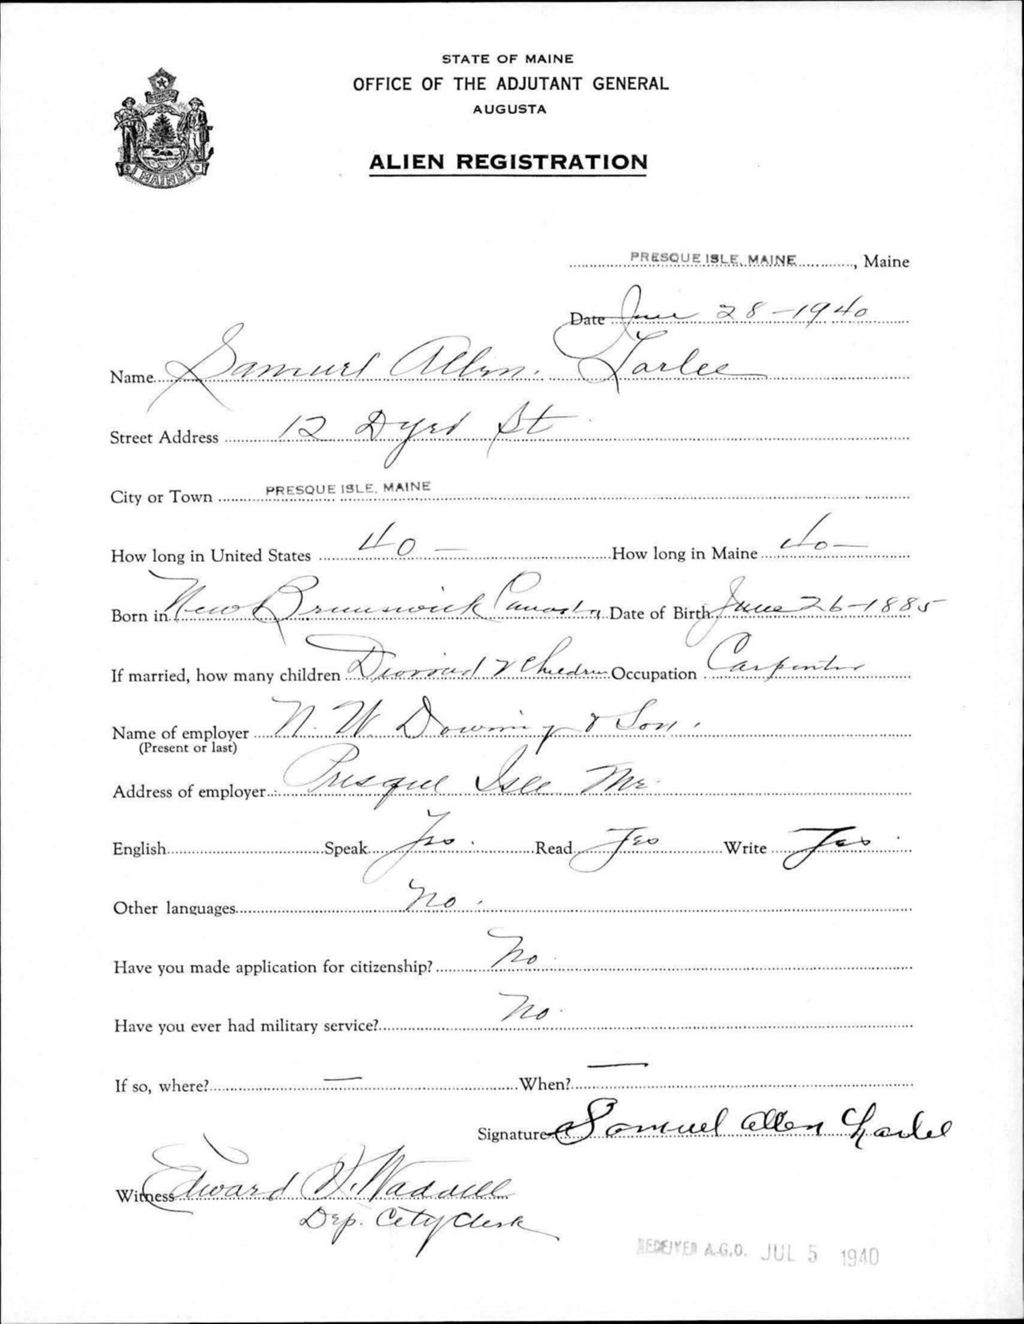 STATE OF MAINE
OFFICE OF THE ADJUTANT GENERAL
AUGUSTA
ALIEN REGISTRATION
MAINE
PRESQUE ISLE, MAINE, Maine
Date June 28-1940
Name Samuel Allen. Tarlee
Street Address 12 Dyer St
City or Town PRESQUE ISLE, MAINE
How long in United States 40 — How long in Maine 40 —
Born in New Brunswick Canada Date of Birth June 26-1885
If married, how many children Divorced Children Occupation Carpenter
Name of employer N. W. Downing & Son.
(Present or last)
Address of employer Presque Isle Me.
English Speak Yes. Read Yes Write Yes.
Other languages No.
Have you made application for citizenship? No.
Have you ever had military service? No.
If so, where? — When? —
Signature Samuel Allen
Witness Edward Waddell
Dep. City Clerk
RECEIVED A.G.O. JUL 5 1940